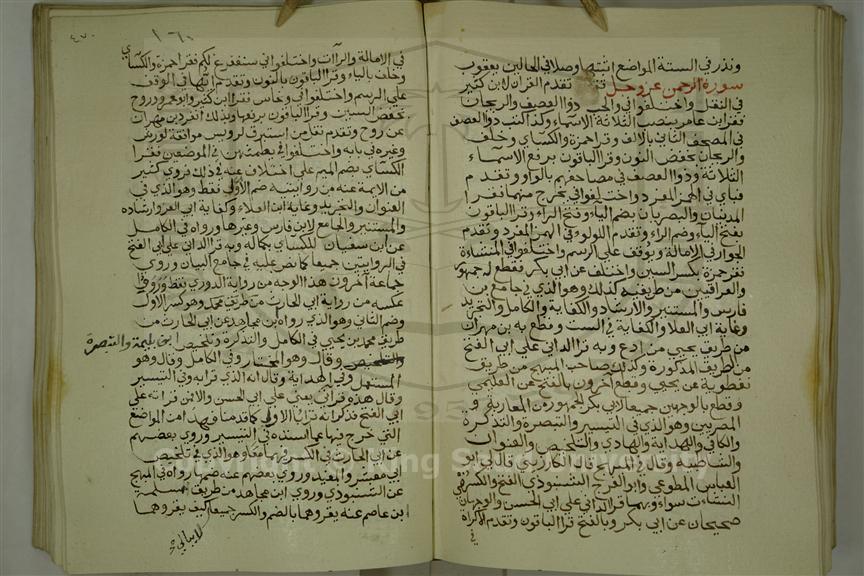 ونذر في الستة المواضع اثبتها وصلا في الحالين يعقوب
سورة الرحمن عز وجل تقدم القران لابن كثير
في النقل واختلفوا في والحب ذو العصف والريحان
فقرا ابن عامر بنصب الثلاثة الاسماء وكذا كتب ذو العصف
في المصحف الشامي بالالف وقرا حمزة والكسائي وخلف
والريحان بخفض النون وقرا الباقون برفع الاسماء
الثلاثة وذو العصف في مصاحفهم بالواو وتقدم
فباي في الهمز المفرد واختلفوا في يخرج منهما فقرا
المدنيان والبصريان بضم الياء وفتح الراء وقرا الباقون
بفتح الياء وضم الراء وتقدم اللولو في الهمز المفرد وتقدم
الجوار في الامالة ويوقف على الرسم واختلفوا في المنشات
فقرا حمزة بكسر الشين واختلف عن ابي بكر فقطع له جمهور
والعراقيين من طريقيه كذلك وهو الذي في جامع بن
فارس والمستنير والارشاد والكفاية والكامل والتجريد
وغاية ابي العلا والكفاية في الست وقطع به بن مهران
من طريق يحيى من ادم وبه قرا الداني على ابي الفتح
من طريق المذكورة وكذلك صاحب المبهج من طريق
نفطويه عن يحيى وقطع آخرون بالفتح عن العليمي
وقطع بالوجهين جميعا لابي بكر الجمهور من المغاربة و
المصريين وهو الذي في التيسير والتبصرة والتذكرة
والكافي والهداية والهادي والتلخيص والعنوان
والشاطبية وقال في المبهج قال الكارزيني قال لي ابو
العباس المطوعي وابو الفرج الشنبوذي الفتح والكسر في
المنشات سواء وبهما قرا الداني على ابي الحسن والوجهان
صحيحان عن ابي بكر وبالفتح قرا الباقون وتقدم الاكرام
في
في الامالة والراآت واختلفوا في سنفرغ لكم فقرا حمزة والكسائي
وخلف بالياء وقرا الباقون بالنون وتقدم ايها في الوقف
على الرسم واختلفوا في ونحاس فقرا ابن كثير وابو عمرو وروح
بخفض السين وقرا الباقون برفعها وبذلك انفرد بن مهران
عن روح وتقدم نقل من استبرق لرويس موافقة لورش
وغيره في بابه واختلفوا في يطمثهن في الموضعين فقرا
الكسائي بضم الميم على اختلاف عنه في ذلك فروى كثير
من الائمة عنه من روايتيه ضم الاولى فقط وهو الذي في
العنوان والتجريد وغاية ابي العلاء وكفاية ابي العز وارشاده
والمستنير والجامع لابن فارس وغيرها ورواه في الكامل
عن ابن سفيان للكسائي بكماله وبه قرا الداني على ابي الفتح
في الروايتين جميعا كما نص عليه في جامع البيان وروى
جماعة آخرون هذا الوجه من رواية الدوري فقط ورووا
عكسه من رواية ابي الحارث من طريق محمد وهو كسر الاولى
وضم الثاني وهو الذي رواه بن مجاهد عن ابي الحارث من
طريق محمد بن يحيى في الكامل والتذكرة وتلخيص ابن بليمة والتبصرة
وقال وهو المختار وفي الكامل وقال وهو
المستعمل وفي الهداية وقال انه الذي قرا به وفي التيسير
وقال هذه قراتي يعني على ابي الحسن والا من قراته على
ابي الفتح فذكر انه قرا بالاولى كما قدمنا فهذا من المواضع
التي خرج فيها عما اسنده في التيسير وروى بعضهم
عن ابي الحارث في الكسر فيهما معا وهو الذي في تلخيص
ابي معشر والمفيد وروى بعضهم عنه ضمهما رواه في المبهج
عن الشنبوذي وروى ابن مجاهد من طريق سلمة
ابن عاصم عنه يقروهما بالضم والكسر جميعا كيف يقروهما
لا يبالي
Copyright © King Saud University